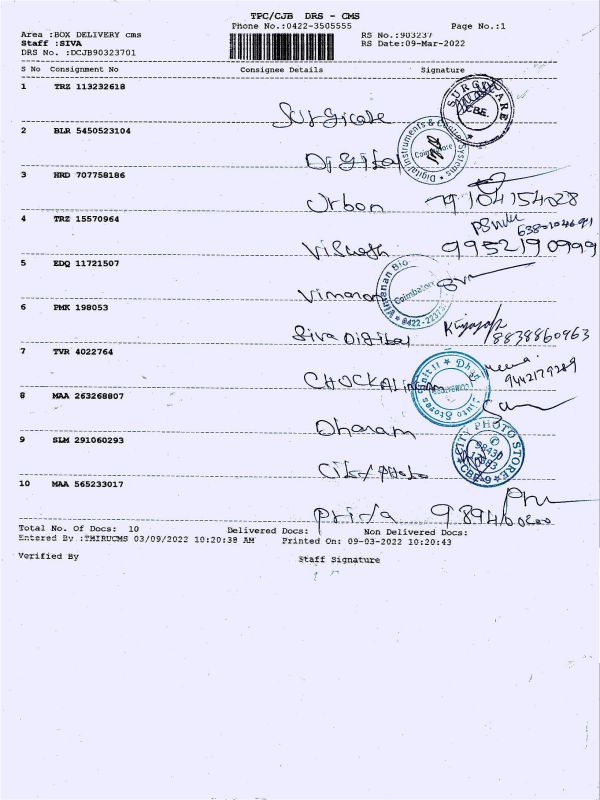 TPC/CJB DRS - CMS
Phone No.:0422-3505555 Page No.:1
Area :BOX DELIVERY cms RS No.:903237
Staff :SIVA RS Date:09-Mar-2022
DRS No. :DCJB90323701
S No Consignment No Consignee Details Signature
1 TRZ 113232618
Surgicare
SURGICARE
CBE.
2 BLR 5450523104
Digital
Digital Instruments & Control Systems
Coimbatore
3 HRD 707758186
Urban 9104154028
4 TRZ 15570964
6380104691
9952190999
5 EDQ 11721507
Coimbatore
6 PMK 198053
Siva Digital 8838860963
7 TVR 4022764
CHOCKALINGAM 9442179289
8 MAA 263268807
Dharam
9 SLM 291060293
City Photo
CITY PHOTO STORE
CBE-9
10 MAA 565233017
Priya
Total No. Of Docs: 10 Delivered Docs: Non Delivered Docs:
Entered By :TMIRUCMS 03/09/2022 10:20:38 AM Printed On: 09-03-2022 10:20:43
Verified By Staff Signature